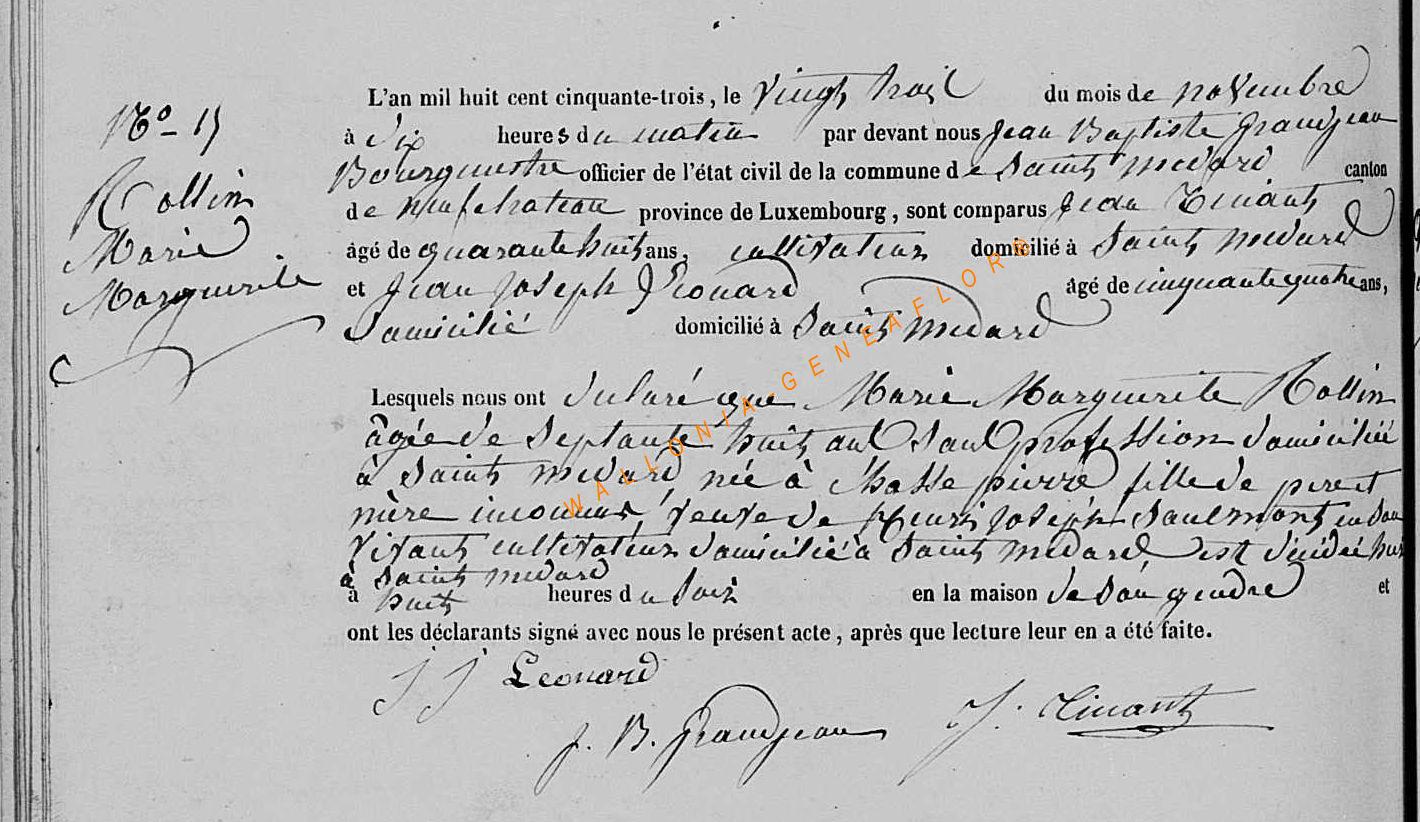 L'an mil huit cent cinquante-trois, le vingt trois du mois de novembre
à dix heures du matin par devant nous Jean Baptiste Grandjean
Bourguestre officier de l'état civil de la commune de Saint medard canton
de neufchateau province de Luxembourg, sont comparus Jean Tinant
âgé de quarante huit ans, cultivateur domicilié à Saint medard
et Jean Joseph Léonard âgé de cinquante quatre ans,
domicilié domicilié à Saint medard
Lesquels nous ont declaré que Marie Marguerite Rollin
âgée de septante huit ans sans profession domiciliée
à Saint medard née à Chassepierre fille de pere et
mère inconnus, veuve de Henri Joseph Saulmont en son
vivant cultivateur domicilié à Saint medard est décidée hier
à Saint medard
à huit heures du soir en la maison de son gendre et
ont les déclarants signé avec nous le présent acte, après que lecture leur en a été faite.
J J Leonard
J. B. Grandjean
J. Tinant
Rollin
Marie
Marguerite
WALLONIA-GENEAFLORE